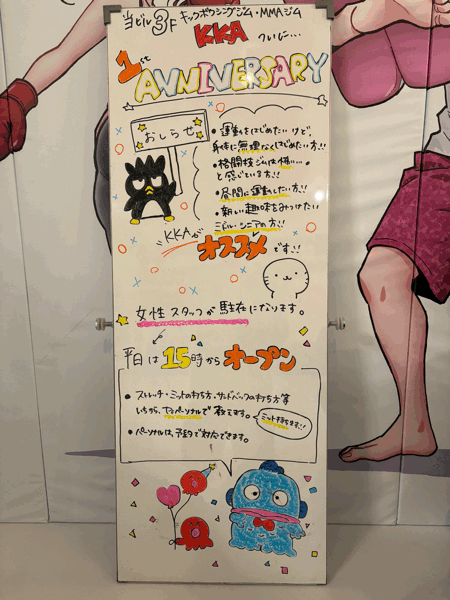 当ビル3F キックボクシングジム・MMAジム
KKA ついに…
1st
ANNIVERSARY
おしらせ
・運動をはじめたいけど、
身体に無理なくはじめたい方!!
・格闘技ジムは怖い…
と感じている方!!
・昼間に運動したい方!!
・新しい趣味をみつけたい
ミドル・シニアの方!!
KKAが
オススメです!!
女性スタッフが駐在になります。
平日は15時からオープン
・ストレッチ・ミットの打ち方・サンドバックの打ち方等
いちから、で教えます。
ミット持ちます!!
・パーソナルは、予約で対応できます。